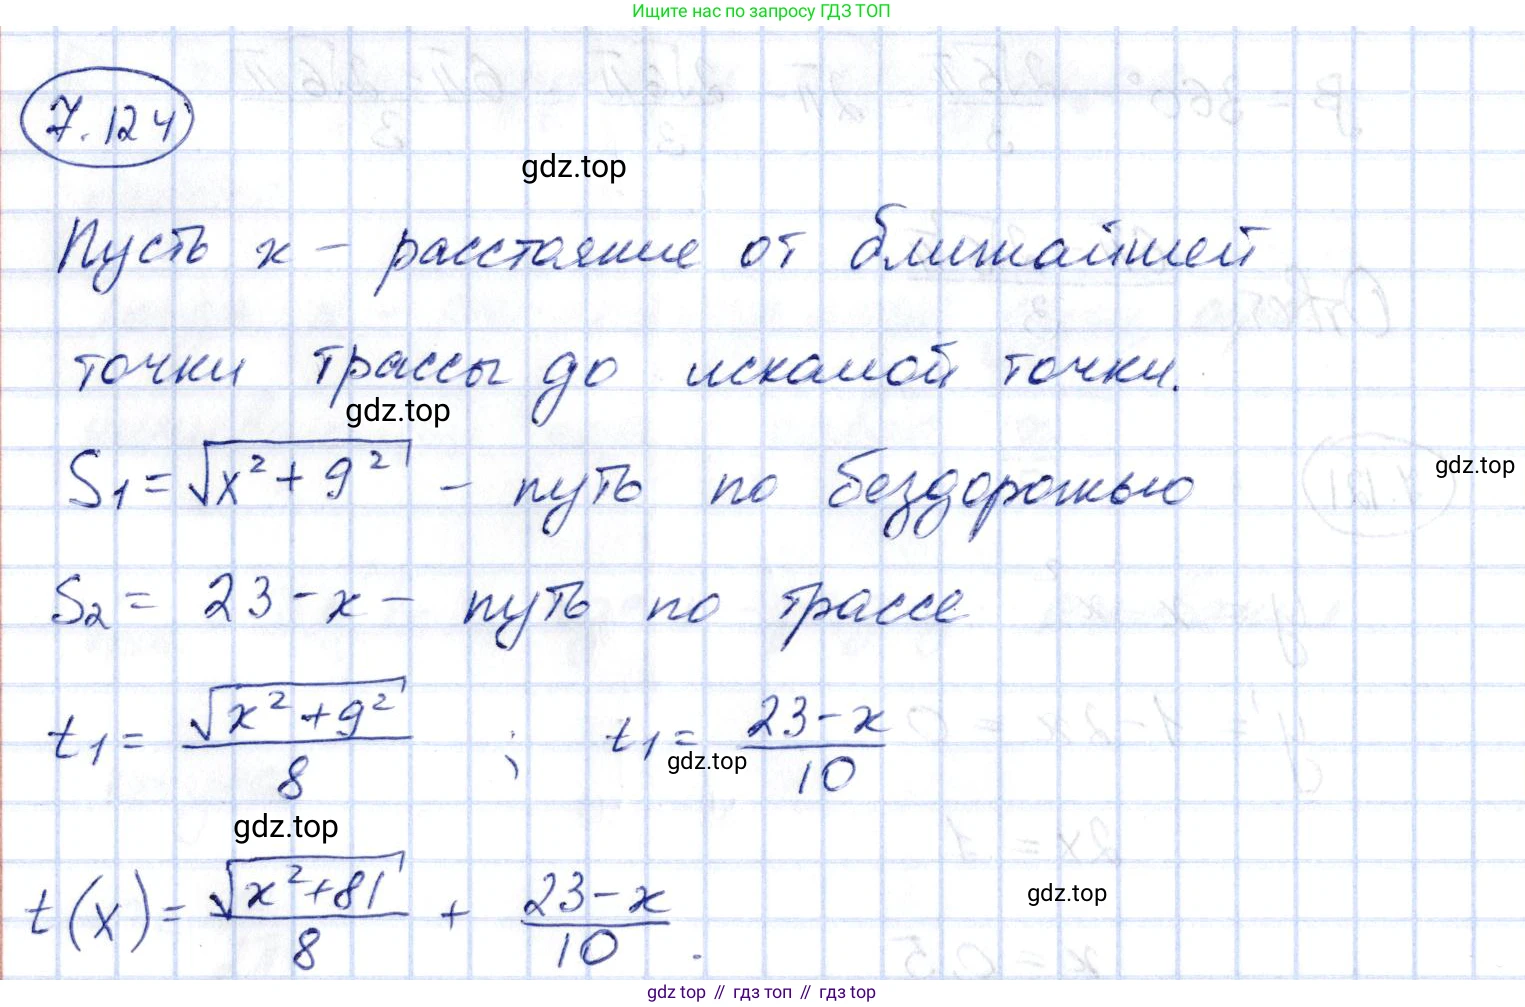 Ищите нас по запросу ГДЗ ТОП
7.124
gdz.top
Пусть x – расстояние от ближайшей
точки трассы до искомой точки.
gdz.top
S₁ = √(x² + 9²) – путь по бездорожью
gdz.top
S₂ = 23 – x – путь по трассе
t₁ = √(x² + 9²)/8 ; t₁ = (23 – x)/10
gdz.top
gdz.top
t(x) = √(x² + 81)/8 + (23 – x)/10 .
gdz.top
gdz.top // гдз топ // гдз top